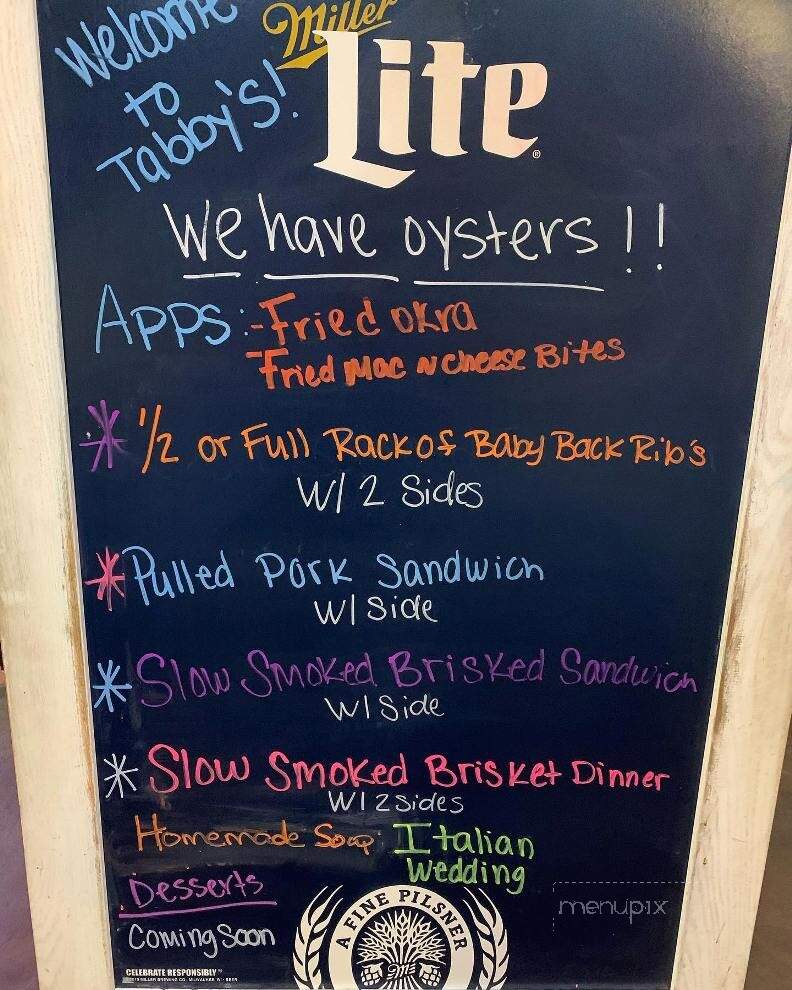 Welcome
to
Tabby's!
Miller
Lite
We have oysters!!
Apps: -Fried okra
-Fried Mac N Cheese Bites
* 1/2 or Full Rack of Baby Back Rib's
W/ 2 Sides
* Pulled Pork Sandwich
W/ Side
* Slow Smoked Brisked Sandwich
W/ Side
* Slow Smoked Brisket Dinner
W/ 2 Sides
Homemade Soup: Italian
Wedding
Desserts
Coming Soon
A FINE PILSNER
menupix
CELEBRATE RESPONSIBLY™
MILLER BREWING CO., MILWAUKEE, WI • BEER